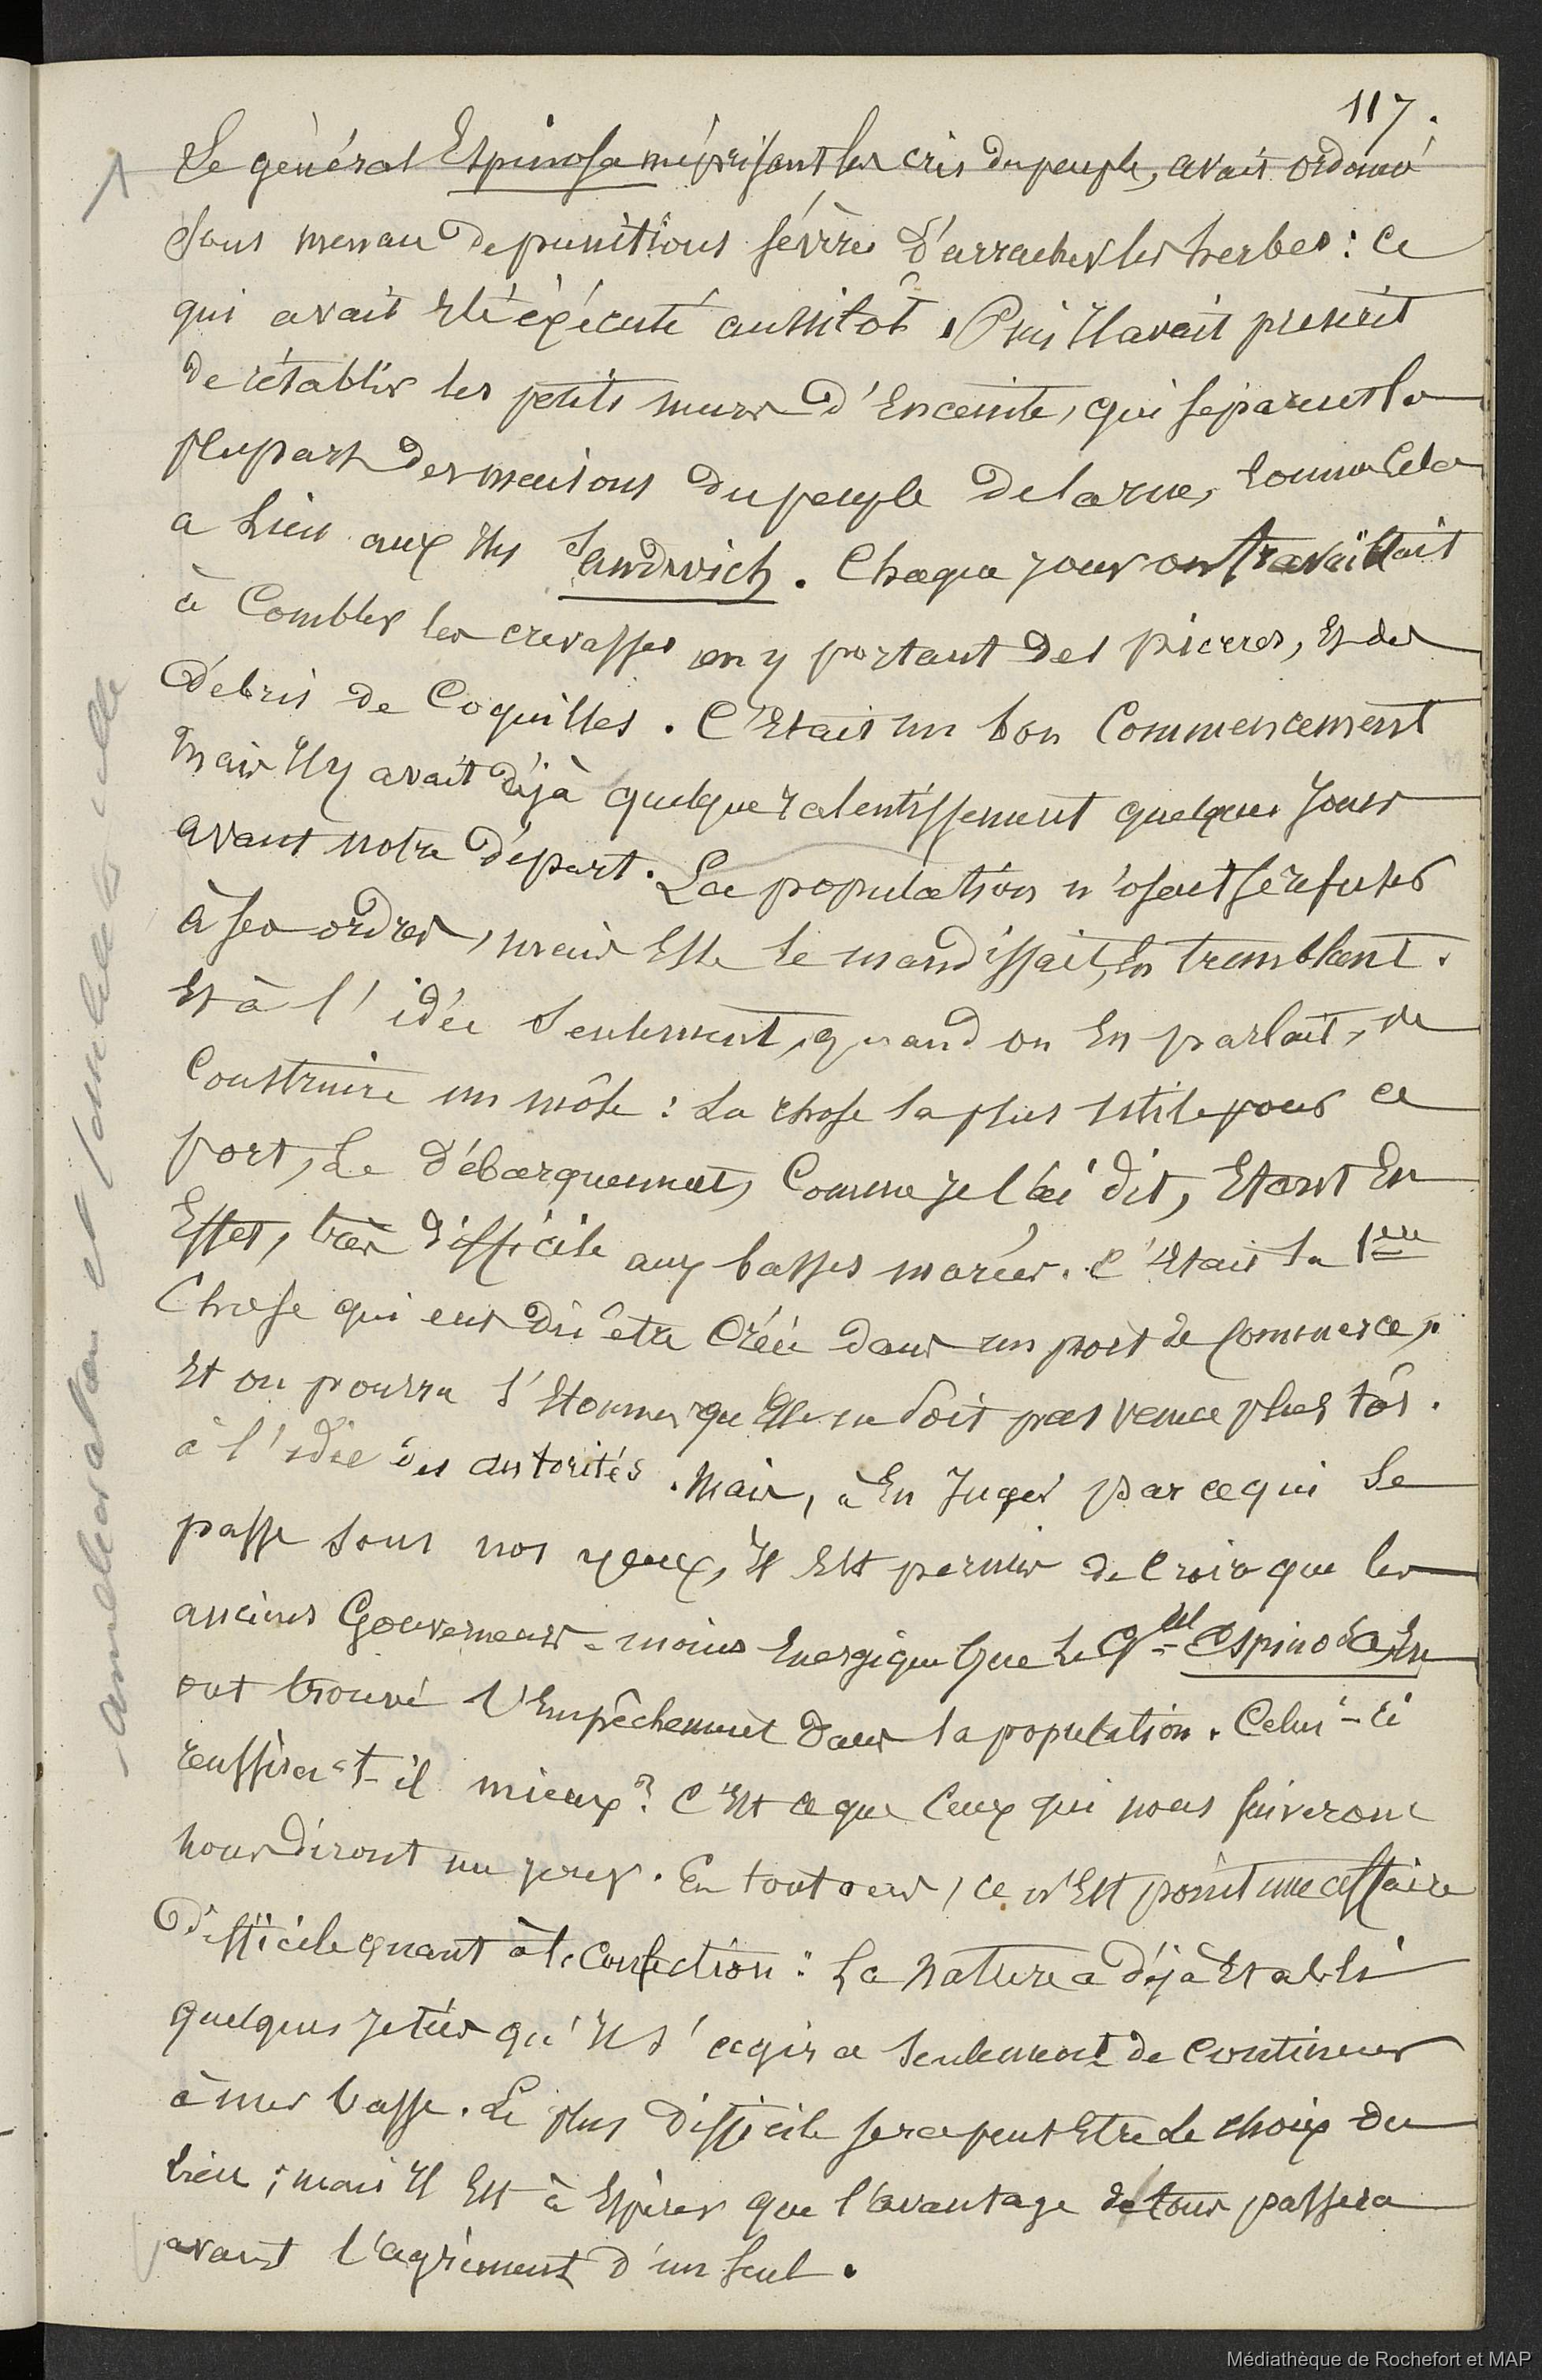 117.
Le général Espinosa méprisant les cris du peuple, avait ordonné
sous menace de punitions sévères d'arracher les herbes : ce
qui avait été éxécuté aussitôt. Puis Il avait prescrit
de rétablir les petits murs d'Enceinte, qui séparent la
plupart des maisons du peuple de la rue, comme Cela
a Lieu aux Iles Sandwich. Chaque jour on travaillait
à Combler les crevasses en y portant des pierres, Et des
Débris de Coquilles. C'Etait un bon Commencement
Mais Il y avait déjà quelque ralentissement quelques Jours
avant notre départ. La population n'osait se refuser
à ses ordres, mais Elle le maudissait, En tremblant.
Et à l'idée seulement, quand on En parlait, de
Construire un môle : La chose la plus Utile pour ce
port, Le débarquement, Comme je l'ai dit, Etant En
Effet, très difficile aux basses marées. C'Etait la 1ere
Chose qui eut dû être Créée dans un port de Commerce,
Et on pourra s'Etonner qu'Elle ne soit pas venue plus tôt.
à l'idée des autorités. Mais, à En Juger par ce qui se
passe sous nos yeux, Il Est permis de Croire que les
anciens Gouverneurs - moins Energiques que Le Gal Espinosa, En
ont trouvé l'Empêchement dans la population. Celui-ci
reussira-t-il mieux ? C'Est ce que Ceux qui nous suiveront
nous diront un jour. En tout cas, ce n'Est point une affaire
Difficile quant à la Confection : La Nature a déjà Etabli
quelques jetées qu'Il s'agira seulement de Continuer
à mer basse. Le plus difficile sera peut Etre Le choix du
Lieu ; mais Il Est à Espérer que l'avantage de tous passera
avant l'agrément d'un Seul.
amelioration et